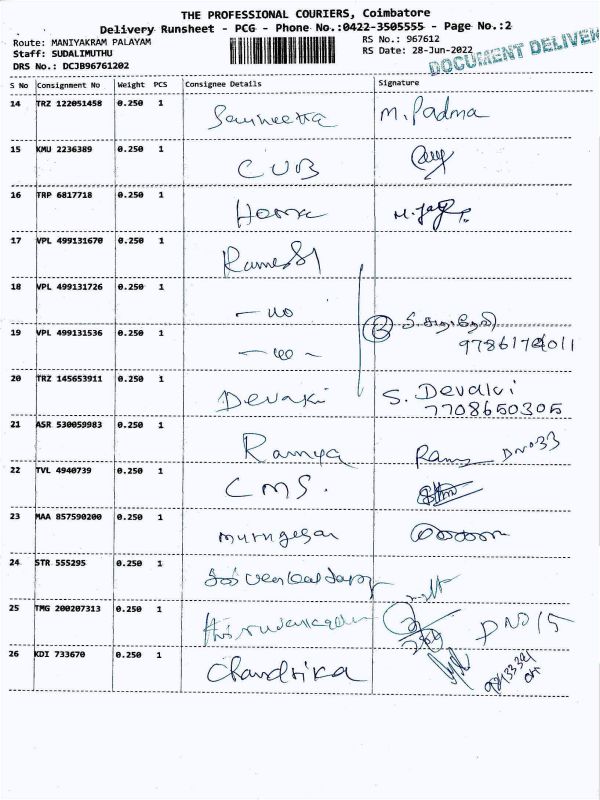 THE PROFESSIONAL COURIERS, Coimbatore
Delivery Runsheet - PCG - Phone No.:0422-3505555 - Page No.:2
Route: MANIYAKRAM PALAYAM RS No.: 967612
Staff: SUDALIMUTHU RS Date: 28-Jun-2022
DRS No.: DCJB96761202
DOCUMENT DELIVER
S No Consignment No Weight PCS Consignee Details Signature
14 TRZ 122051458 0.250 1 M. Padma
15 KMU 2236389 0.250 1 CUB
16 TRP 6817718 0.250 1
17 VPL 499131670 0.250 1 Ramesh
18 VPL 499131726 0.250 1
19 VPL 499131536 0.250 1
20 TRZ 145653911 0.250 1 Devaki S. Devaki
7708650305
21 ASR 530059983 0.250 1 Ramya DNo 33
22 TVL 4940739 0.250 1 CMS.
23 MAA 857590200 0.250 1 murugesan
24 STR 555295 0.250 1
25 TMG 200207313 0.250 1 DNO 15
26 KDI 733670 0.250 1 Chandrika